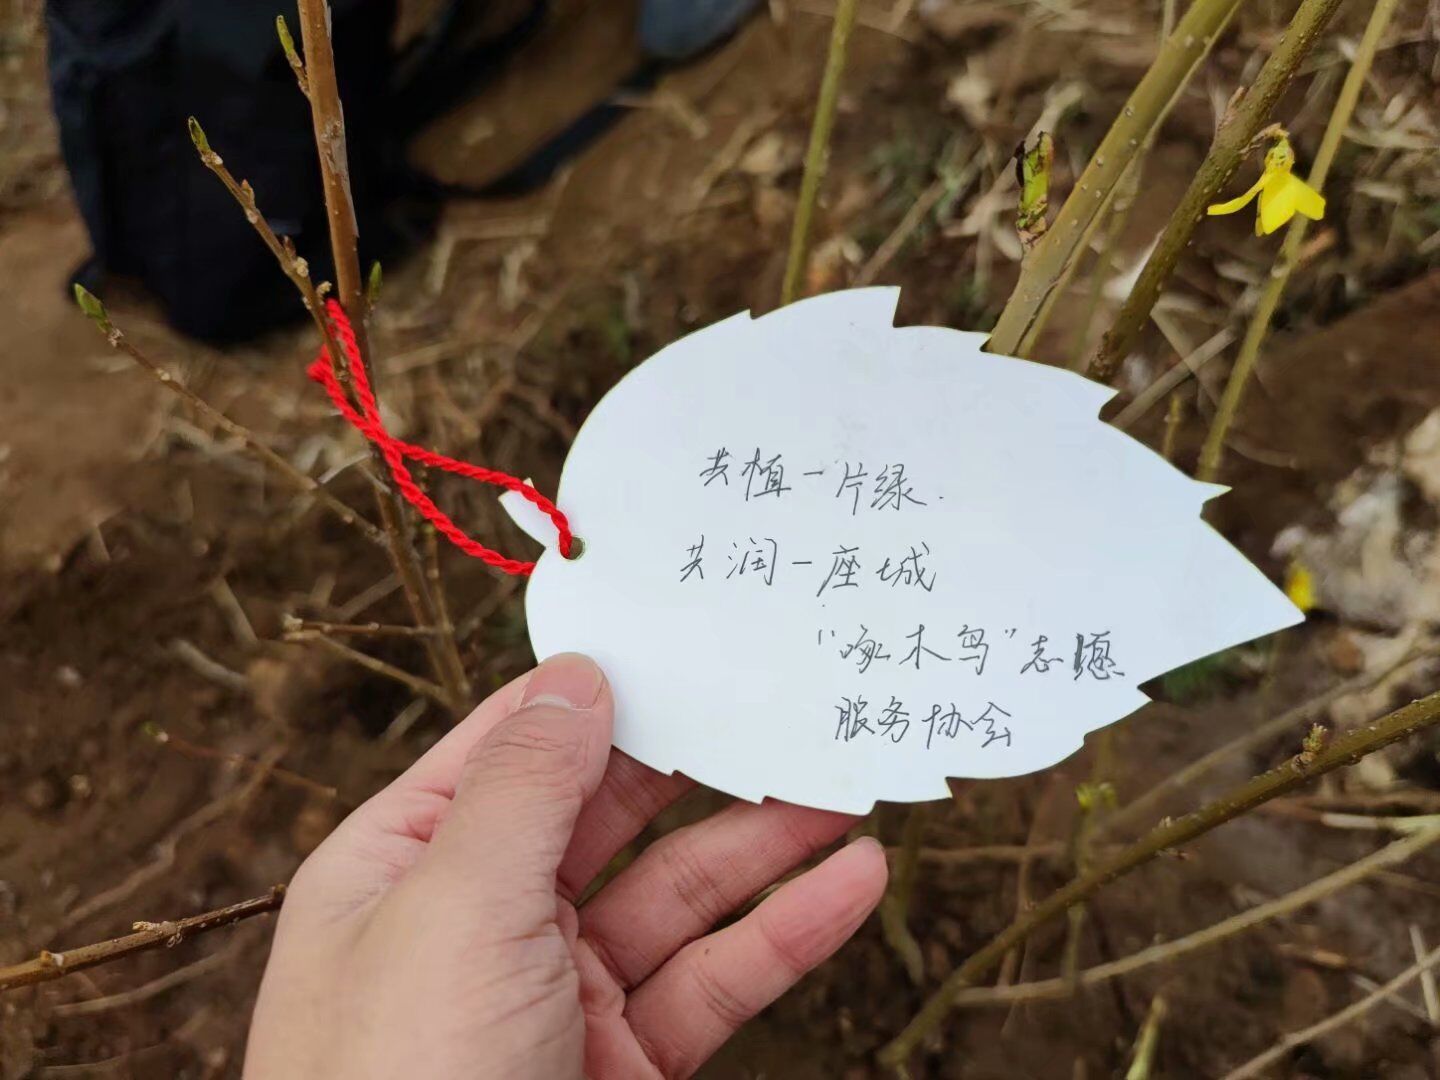 共植一片绿.
共润一座城
“啄木鸟”志愿
服务协会